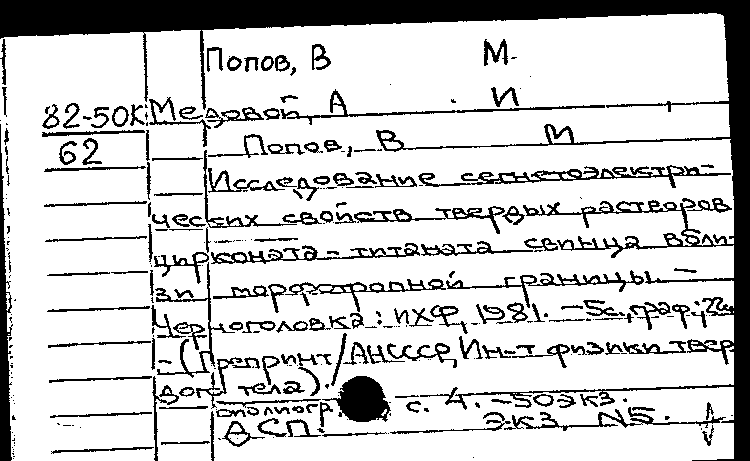 Попов, В М.
82-50К Медовой, А. И
62 Попов, В М
Исследование сегнетоэлектри-
ческих свойств твердых растворов
цирконата-титаната свинца вбли-
зи морфотропной границы. –
Черноголовка: ИХФ, 1981. – 5с., граф.;
– (Препринт / АНСССР, Ин-т физики твер
дого тела).
с. 4. – 50экз.
ДСП! Экз. N5.